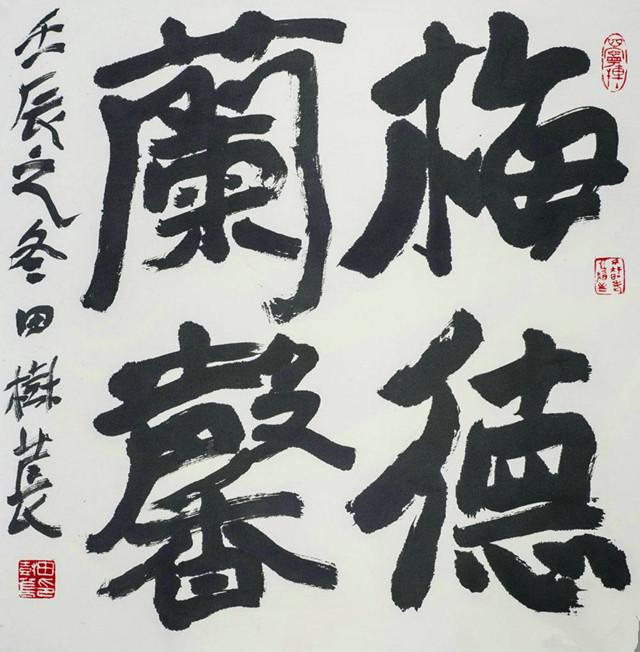 梅德
蘭馨
壬辰之冬田樹萇